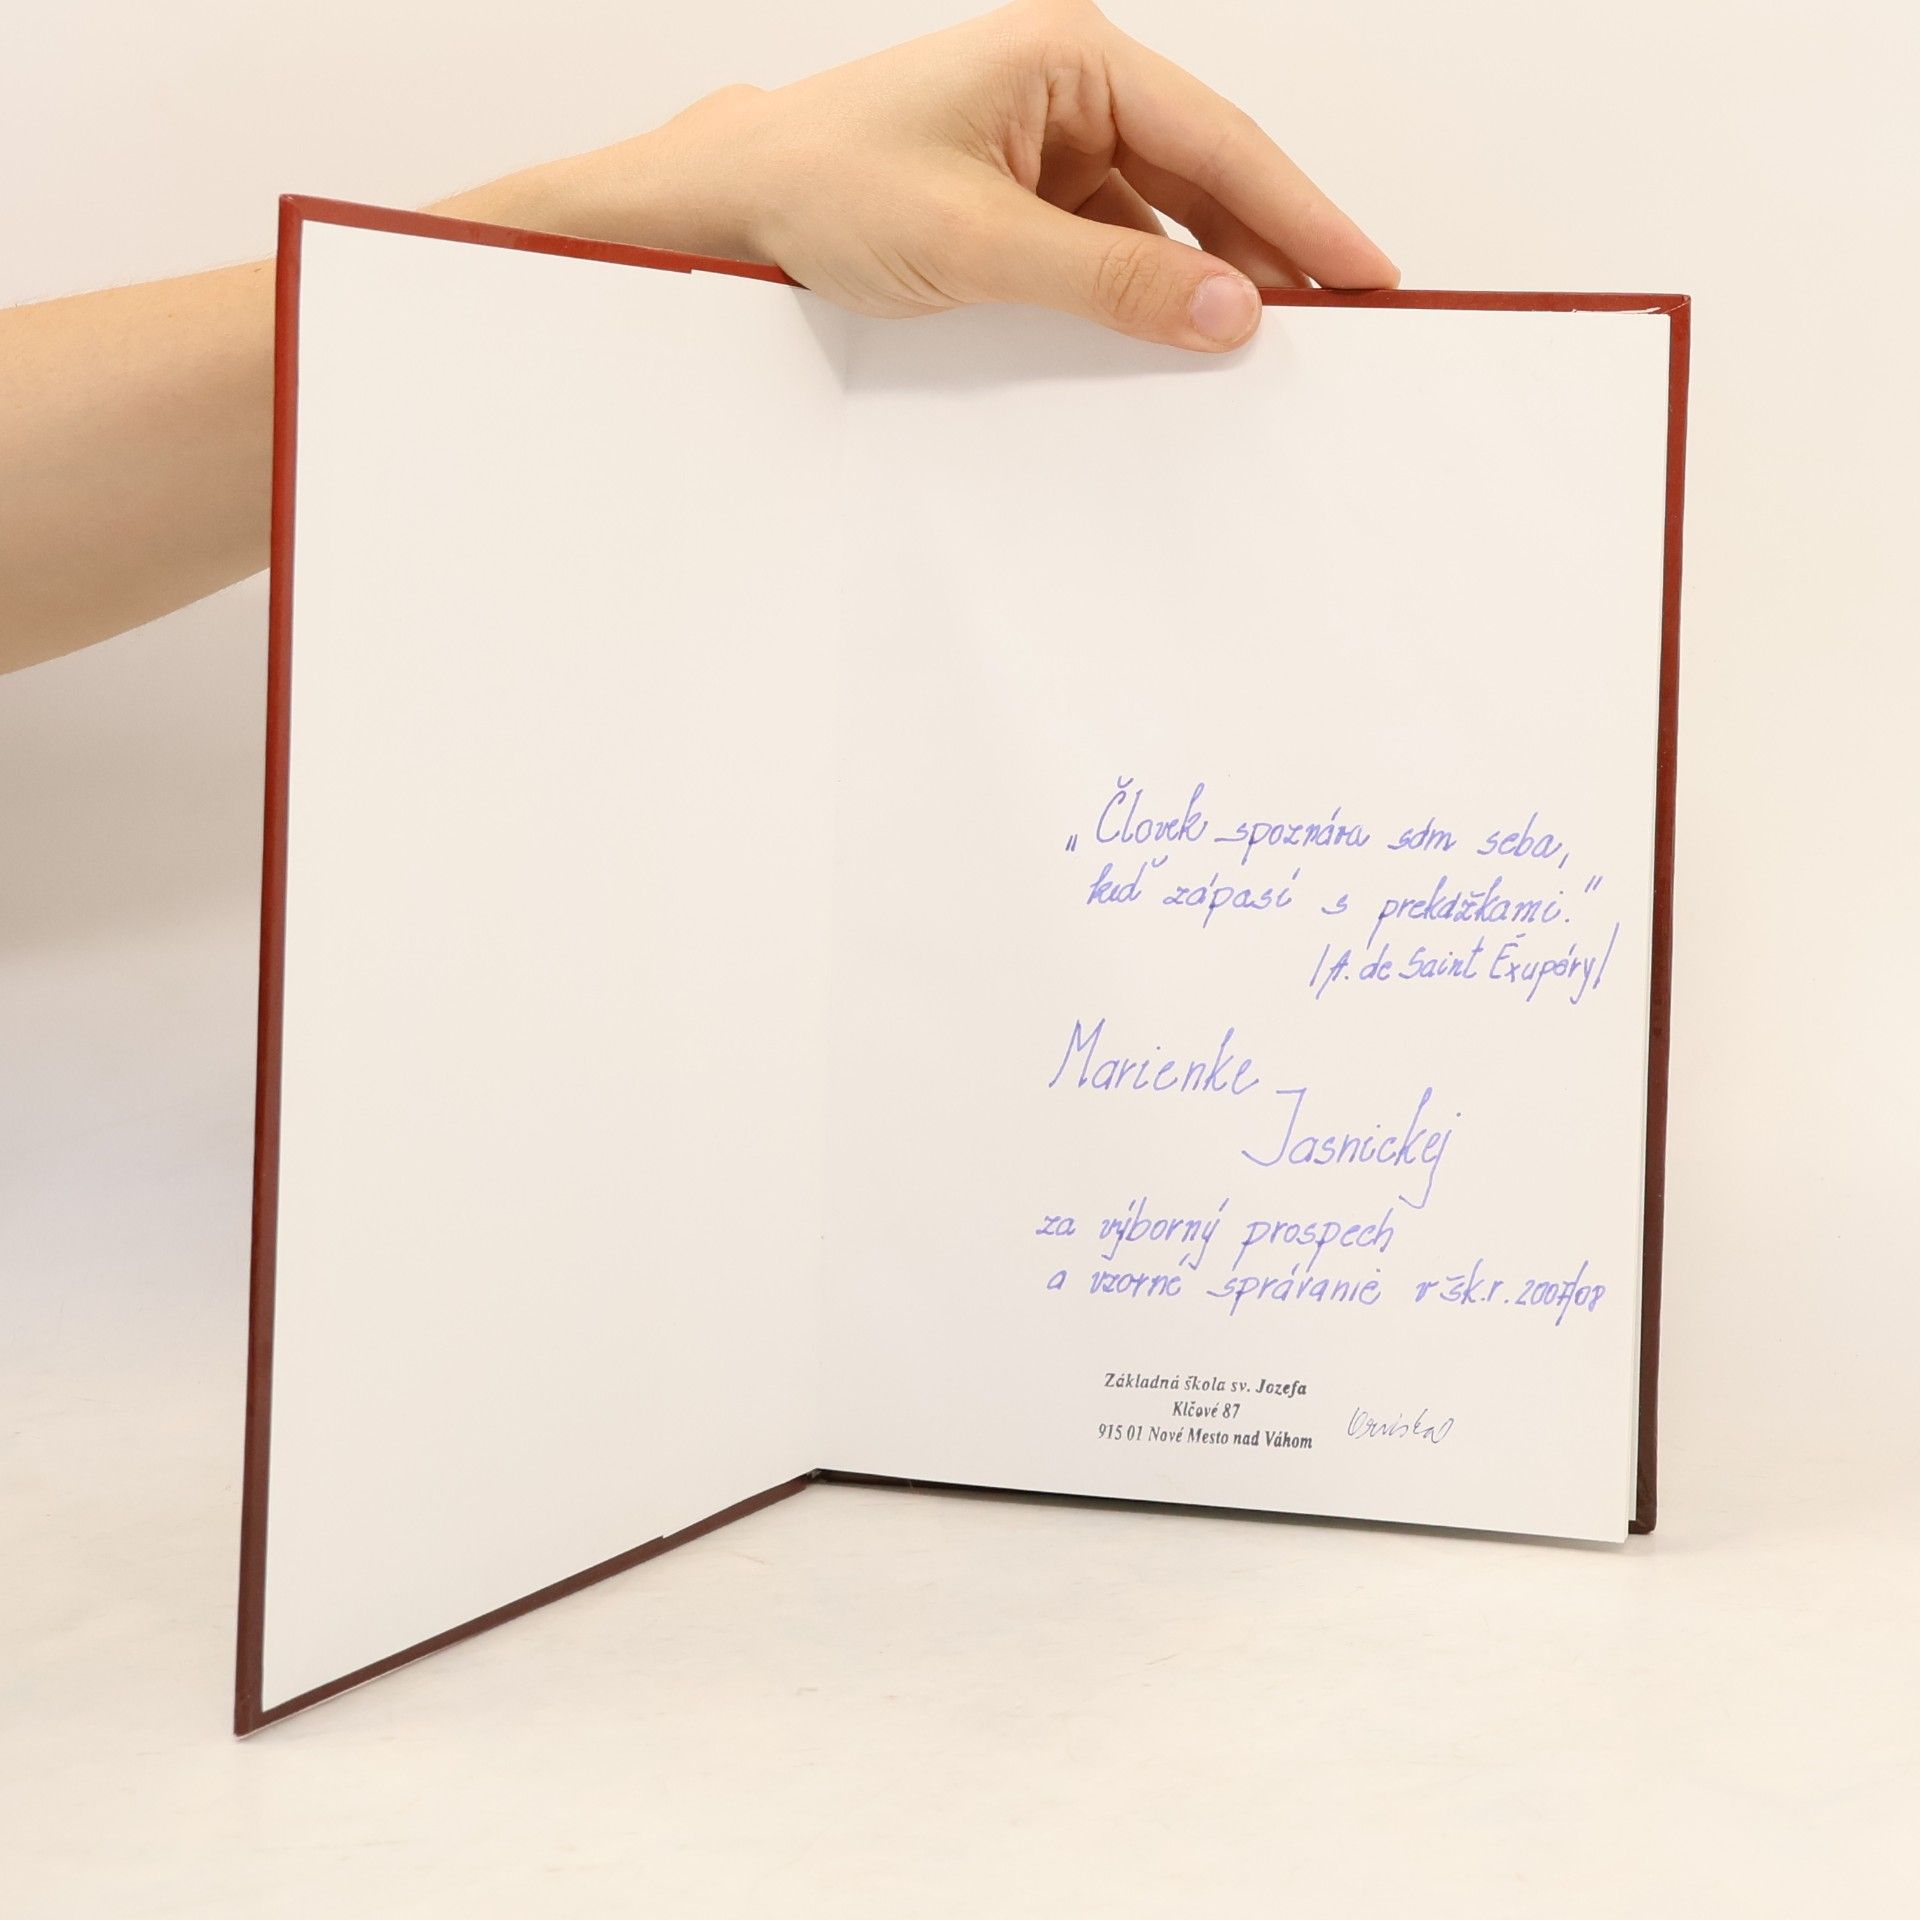 „Človek spoznáva sám seba,
keď zápasí s prekážkami."
/A. de Saint Éxupéry/
Marienke
Jasnickej
za výborný prospech
a vzorné správanie v šk.r. 2007/08
Základná škola sv. Jozefa
Klčové 87
915 01 Nové Mesto nad Váhom